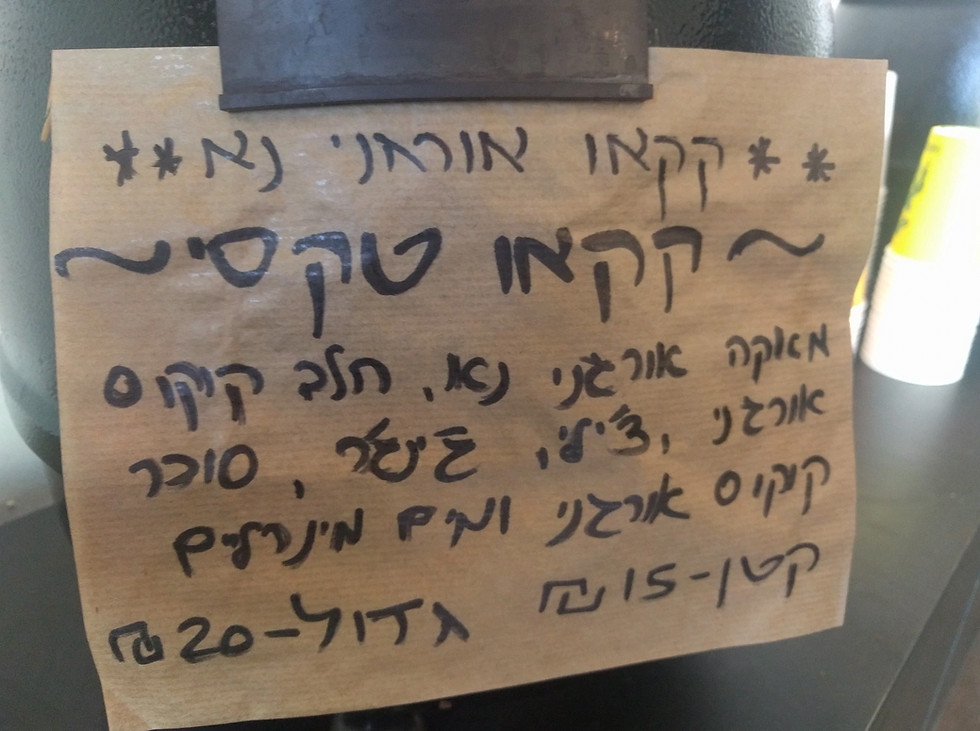 ** קקאו אורגני נא **
~ קקאו טקסי ~
מאקה אורגני נא, חלב קוקוס
אורגני, צ'ילי, ג'ינג'ר, סוכר
קוקוס אורגני ומים מינרלים
קטן-15₪ גדול-20₪